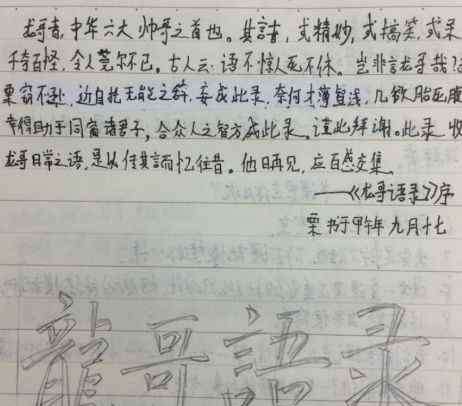 龙哥者,中华六大帅哥之首也。其言者,或精妙,或搞笑,或呆
千奇百怪,令人莞尔不已。古人云:语不惊人死不休。岂非言龙哥哉?
栗窃不逊,近自托无能之辞,妄成此录,奈何才薄智浅,几欲胎死腹
幸得助于同窗诸君子,合众人之智方成此录,谨此拜谢。此录收
龙哥日常之语,是以传其言而忆往昔。他日再见,应百感交集。
——《龙哥语录》序
栗书于甲午年九月十七
龍哥語录